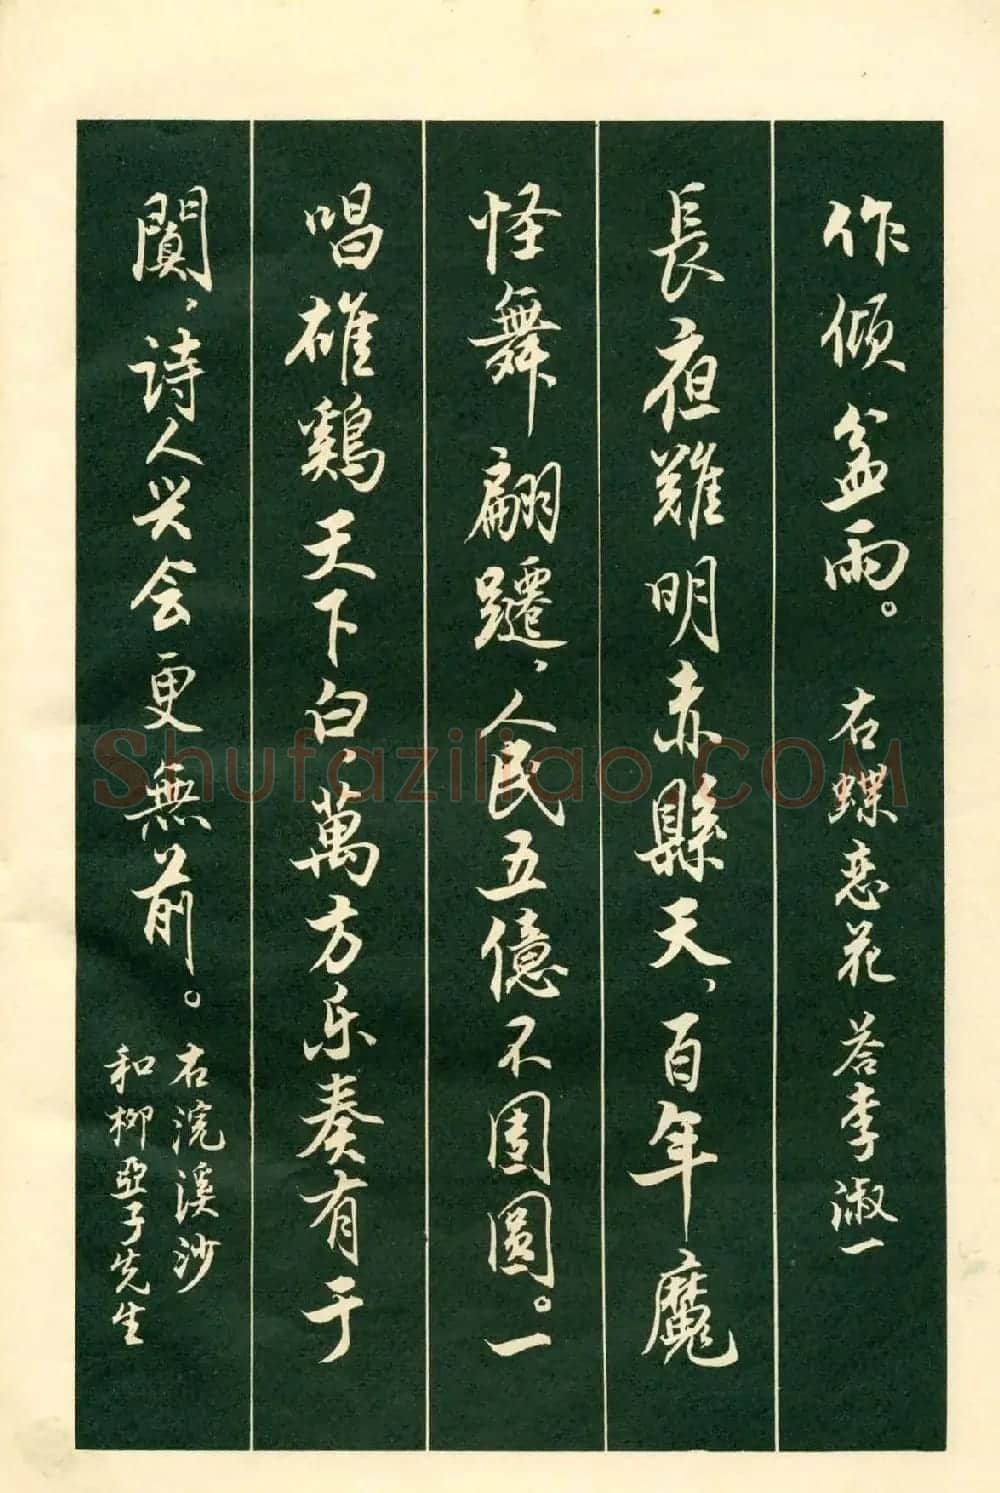 作傾盆雨。 右蝶恋花 荅李淑一
長夜難明赤縣天、百年魔
怪舞翩躚、人民五億不團圓。一
唱雄鷄天下白、萬方乐奏有于
闐、诗人兴会更無前。
右浣溪沙
和柳亞子先生
Shufaziliao.COM